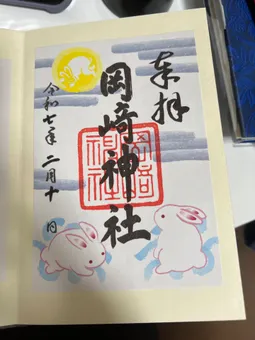 奉拝
岡崎神社
岡崎神社
令和七年二月十日